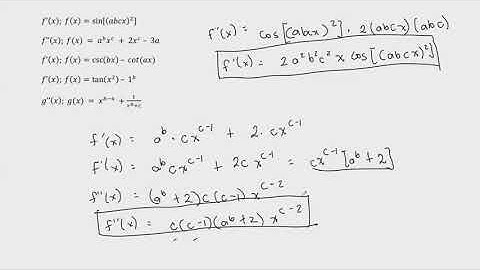 f′(x); f(x) = sin[(abcx)²]
f″(x); f(x) = aᵇxᶜ + 2xᶜ − 3a
f′(x); f(x) = csc(bx) − cot(ax)
f′(x); f(x) = tan(x²) − 1ᵇ
g″(x); g(x) =
f′(x) = cos[(abcx)²] · 2(abcx)(abc)
f′(x) = 2a²b²c² x cos[(abcx)²]
f′(x) = aᵇ · cxᶜ⁻¹ + 2 · cxᶜ⁻¹
f′(x) = aᵇcxᶜ⁻¹ + 2cxᶜ⁻¹ = cxᶜ⁻¹[aᵇ + 2]
f″(x) = (aᵇ + 2)c(c−1)xᶜ⁻²
f″(x) = c(c−1)(aᵇ+2)xᶜ⁻²